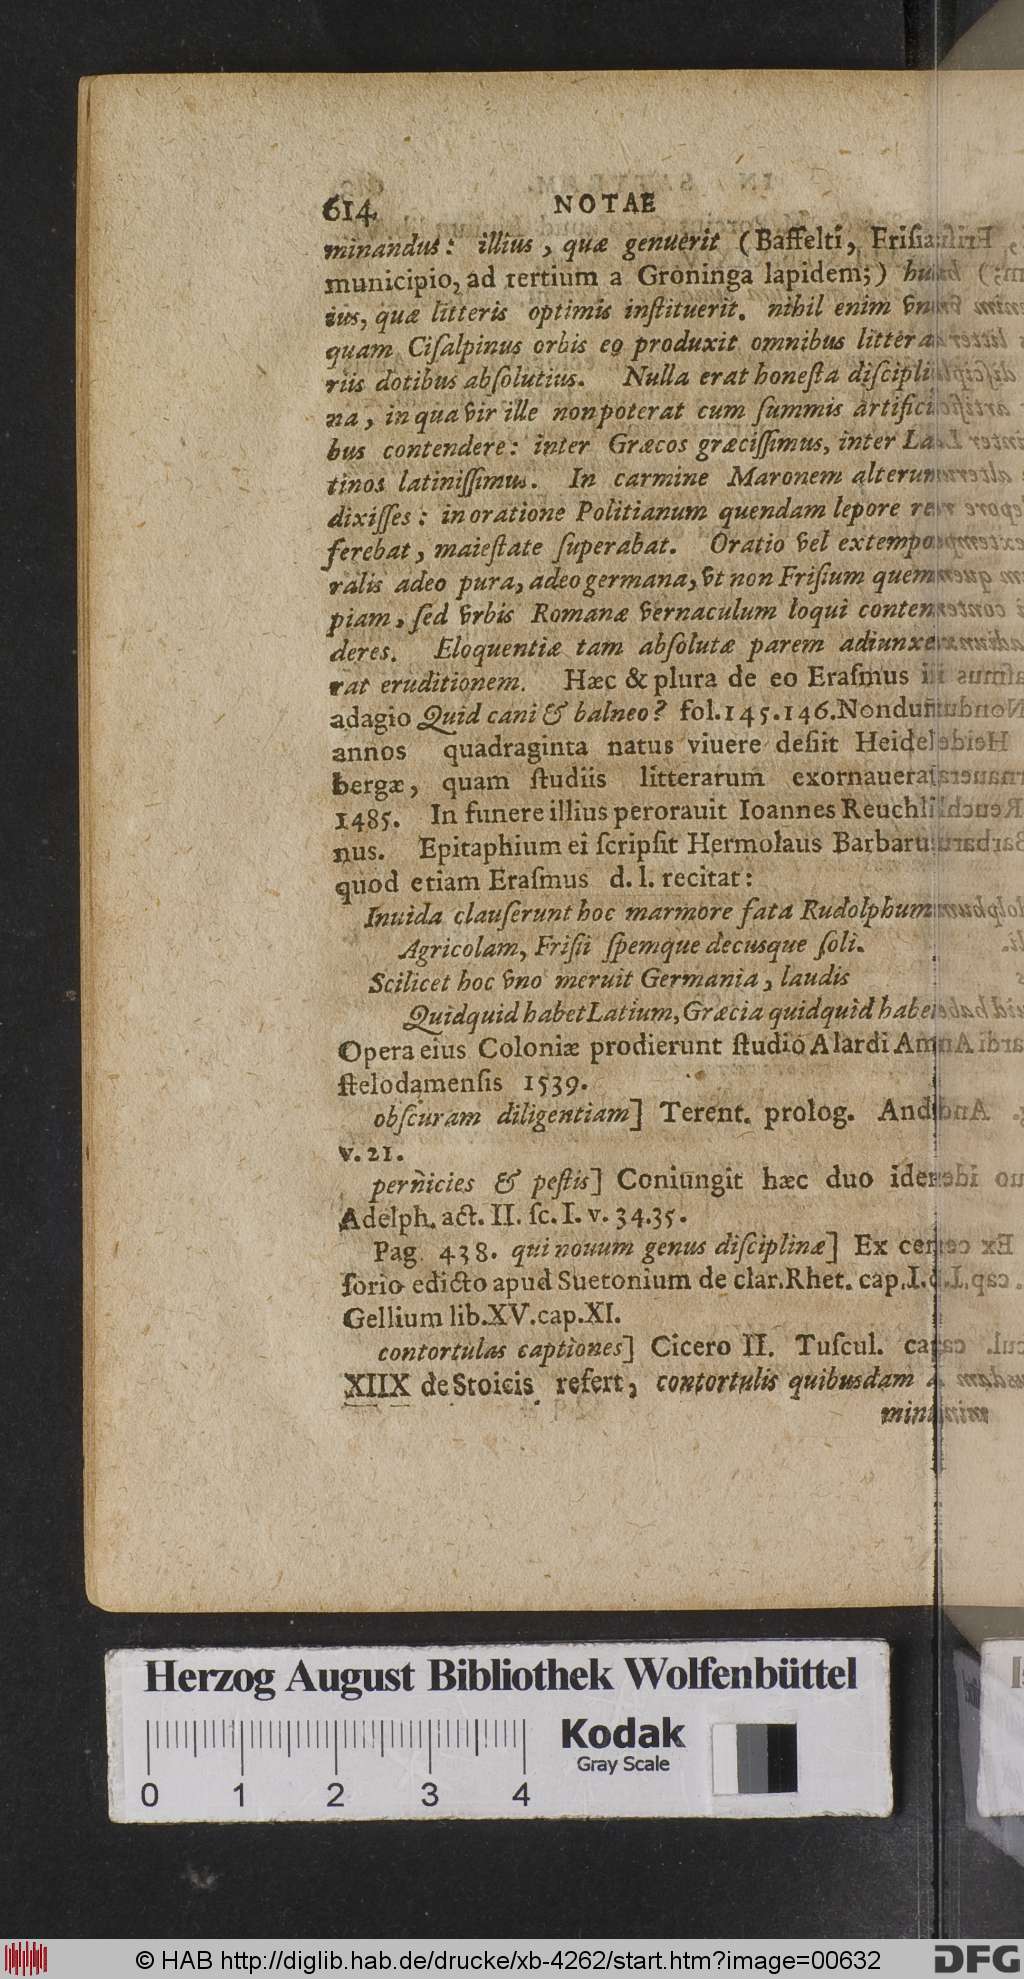 614 NOTAE
minandus: illius, quæ genuerit (Baffelti, Frisiæ
municipio, ad tertium a Groninga lapidem;) hu
ius, quæ litteris optimis instituerit. nihil enim vn
quam Cisalpinus orbis eo produxit omnibus littera
riis dotibus absolutius. Nulla erat honesta discipli
na, in qua vir ille non poterat cum summis artifici
bus contendere: inter Græcos græcissimus, inter La
tinos latinissimus. In carmine Maronem alterum
dixisses: in oratione Politianum quendam lepore re
ferebat, maiestate superabat. Oratio vel extempo
ralis adeo pura, adeo germana, vt non Frisium quem
piam, sed vrbis Romanæ vernaculum loqui conten
deres. Eloquentiæ tam absolutæ parem adiunxe
rat eruditionem. Hæc & plura de eo Erasmus in
adagio Quid cani & balneo? fol.145.146. Nondum
annos quadraginta natus viuere desiit Heidel
bergæ, quam studiis litterarum exornauerat
1485. In funere illius perorauit Ioannes Reuchli
nus. Epitaphium ei scripsit Hermolaus Barbarus
quod etiam Erasmus d. l. recitat:
Inuida clauserunt hoc marmore fata Rudolphum
Agricolam, Frisii spemque decusque soli.
Scilicet hoc vno meruit Germania, laudis
Quidquid habet Latium, Græcia quidquid habet
Opera eius Coloniæ prodierunt studio Alardi Am
stelodamensis 1539.
obscuram diligentiam] Terent. prolog. And
v. 21.
pernicies & pestis] Coniungit hæc duo idem
Adelph. act. II. sc. I. v. 34.35.
Pag. 438. qui nouum genus disciplinæ] Ex cen
sorio edicto apud Suetonium de clar. Rhet. cap. I.
Gellium lib. XV. cap. XI.
contortulas captiones] Cicero II. Tuscul. cap
XIIX de Stoicis refert, contortulis quibusdam
minu
Herzog August Bibliothek Wolfenbüttel
0 1 2 3 4
Kodak
Gray Scale
© HAB http://diglib.hab.de/drucke/xb-4262/start.htm?image=00632
DFG